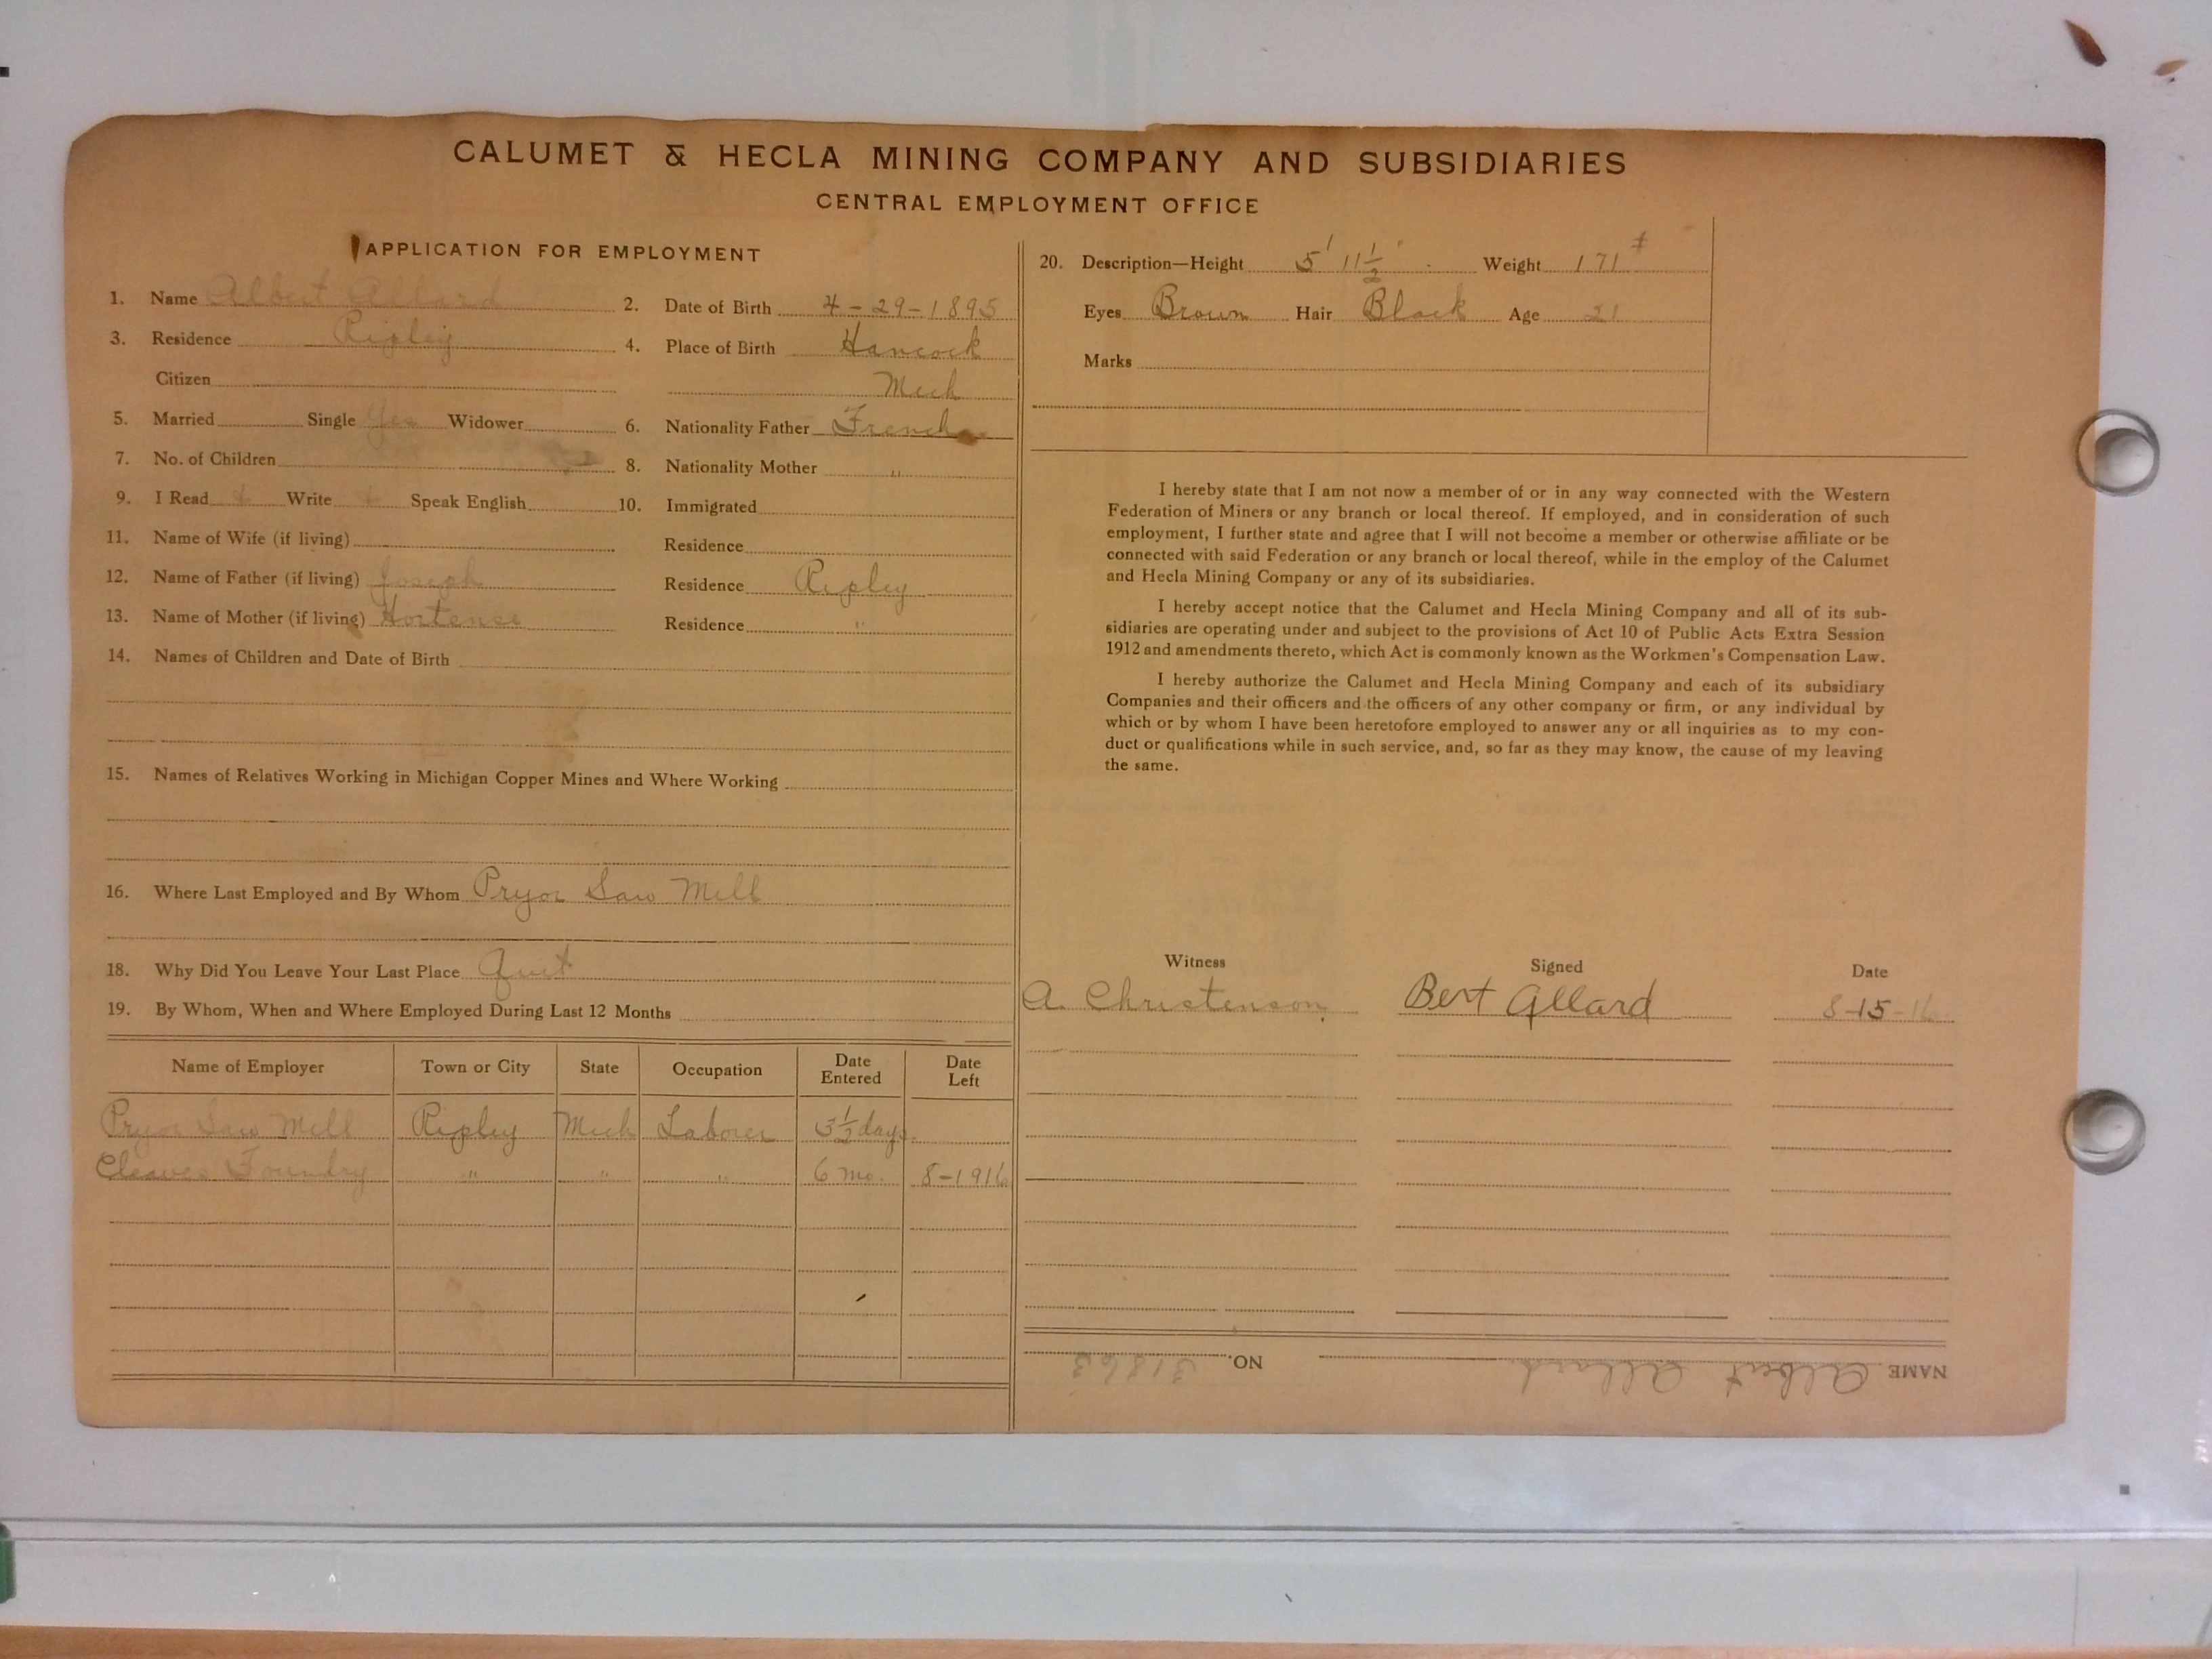 CALUMET & HECLA MINING COMPANY AND SUBSIDIARIES
CENTRAL EMPLOYMENT OFFICE
APPLICATION FOR EMPLOYMENT
1. Name Albert Allard 2. Date of Birth 4-29-1895
3. Residence Ripley 4. Place of Birth Hancock
Citizen Mich
5. Married Single Yes Widower 6. Nationality Father French
7. No. of Children 8. Nationality Mother "
9. I Read Write Speak English 10. Immigrated
11. Name of Wife (if living) Residence
12. Name of Father (if living) Joseph Residence Ripley
13. Name of Mother (if living) Hortense Residence "
14. Names of Children and Date of Birth
15. Names of Relatives Working in Michigan Copper Mines and Where Working
16. Where Last Employed and By Whom Pryor Saw Mill
18. Why Did You Leave Your Last Place Quit
19. By Whom, When and Where Employed During Last 12 Months
Name of Employer Town or City State Occupation Date Entered Date Left
Pryor Saw Mill Ripley Mich Laborer 3½ days
Cleaves Foundry " " " 6 mo. 8-1916
20. Description—Height 5' 11½" Weight 171#
Eyes Brown Hair Black Age 21
Marks
I hereby state that I am not now a member of or in any way connected with the Western
Federation of Miners or any branch or local thereof. If employed, and in consideration of such
employment, I further state and agree that I will not become a member or otherwise affiliate or be
connected with said Federation or any branch or local thereof, while in the employ of the Calumet
and Hecla Mining Company or any of its subsidiaries.
I hereby accept notice that the Calumet and Hecla Mining Company and all of its sub-
sidiaries are operating under and subject to the provisions of Act 10 of Public Acts Extra Session
1912 and amendments thereto, which Act is commonly known as the Workmen's Compensation Law.
I hereby authorize the Calumet and Hecla Mining Company and each of its subsidiary
Companies and their officers and the officers of any other company or firm, or any individual by
which or by whom I have been heretofore employed to answer any or all inquiries as to my con-
duct or qualifications while in such service, and, so far as they may know, the cause of my leaving
the same.
Witness Signed Date
A. Christenson Bert Allard 8-15-16
NAME Albert Allard NO. 31863